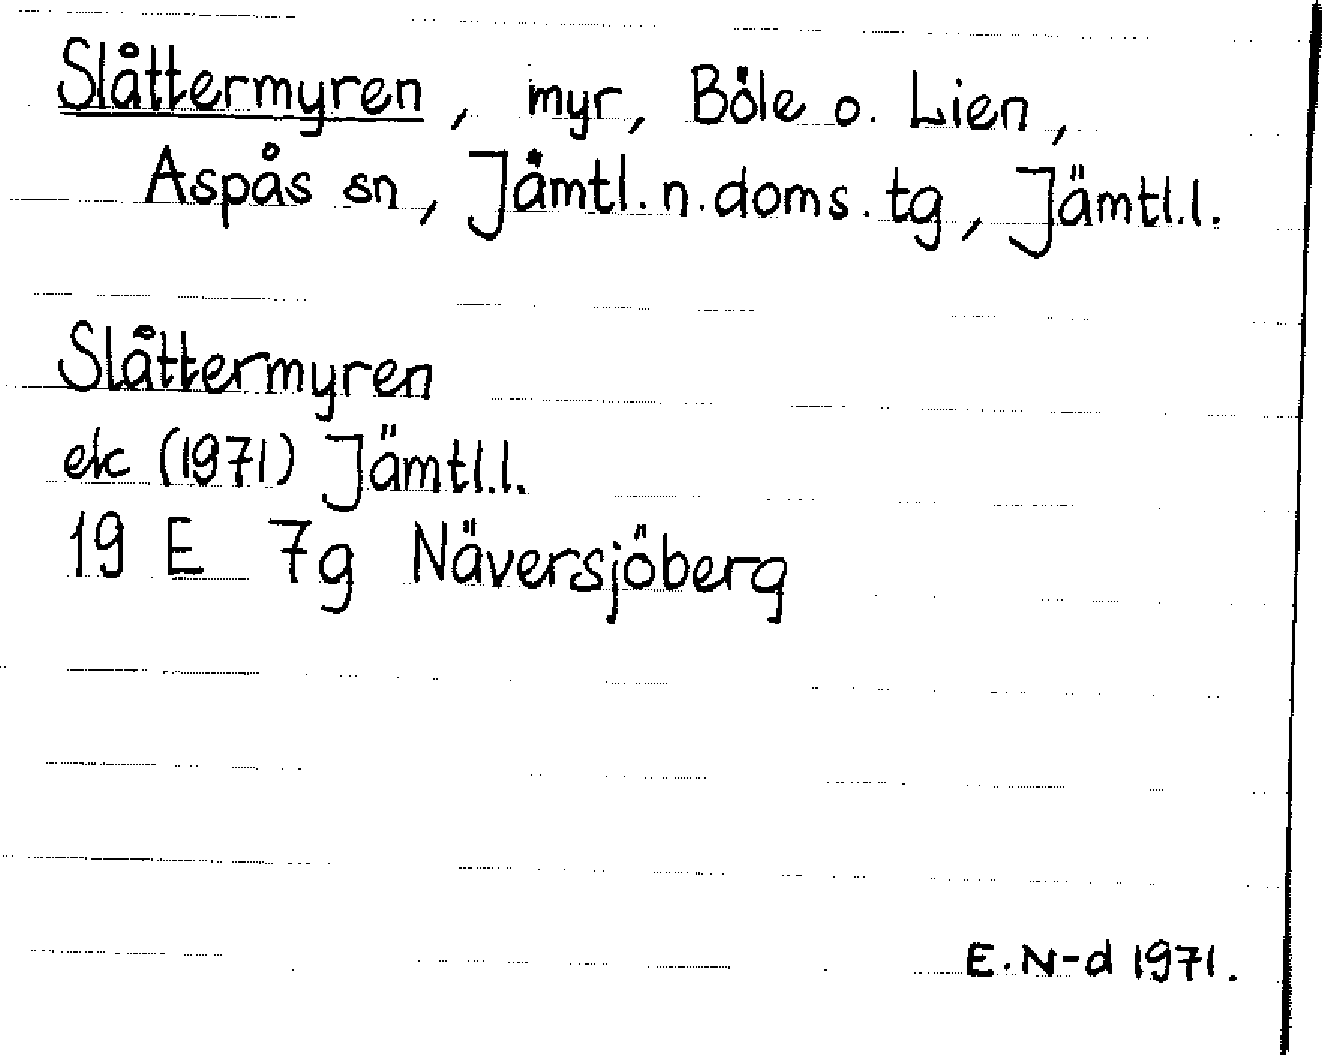 Slåttermyren, myr, Böle o. Lien,
Aspås sn, Jämtl. n. doms. tg, Jämtl.l.
Slåttermyren
ek (1971) Jämtl.l.
19 E 7g Näversjöberg
E. N-d 1971.